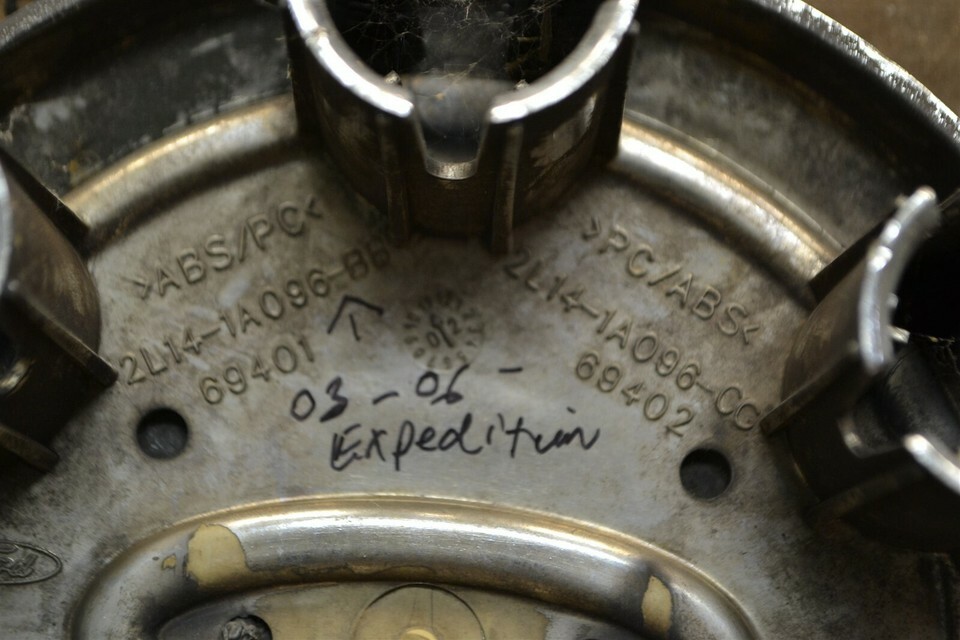 >ABS/PC<
2L14-1A096-BB
69401
>PC/ABS<
2L14-1A096-CC
69402
02
03-06-
Expedition